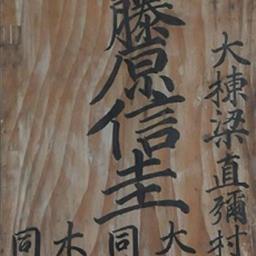 大棟梁直彌村
藤原信圭
大
同
木
同